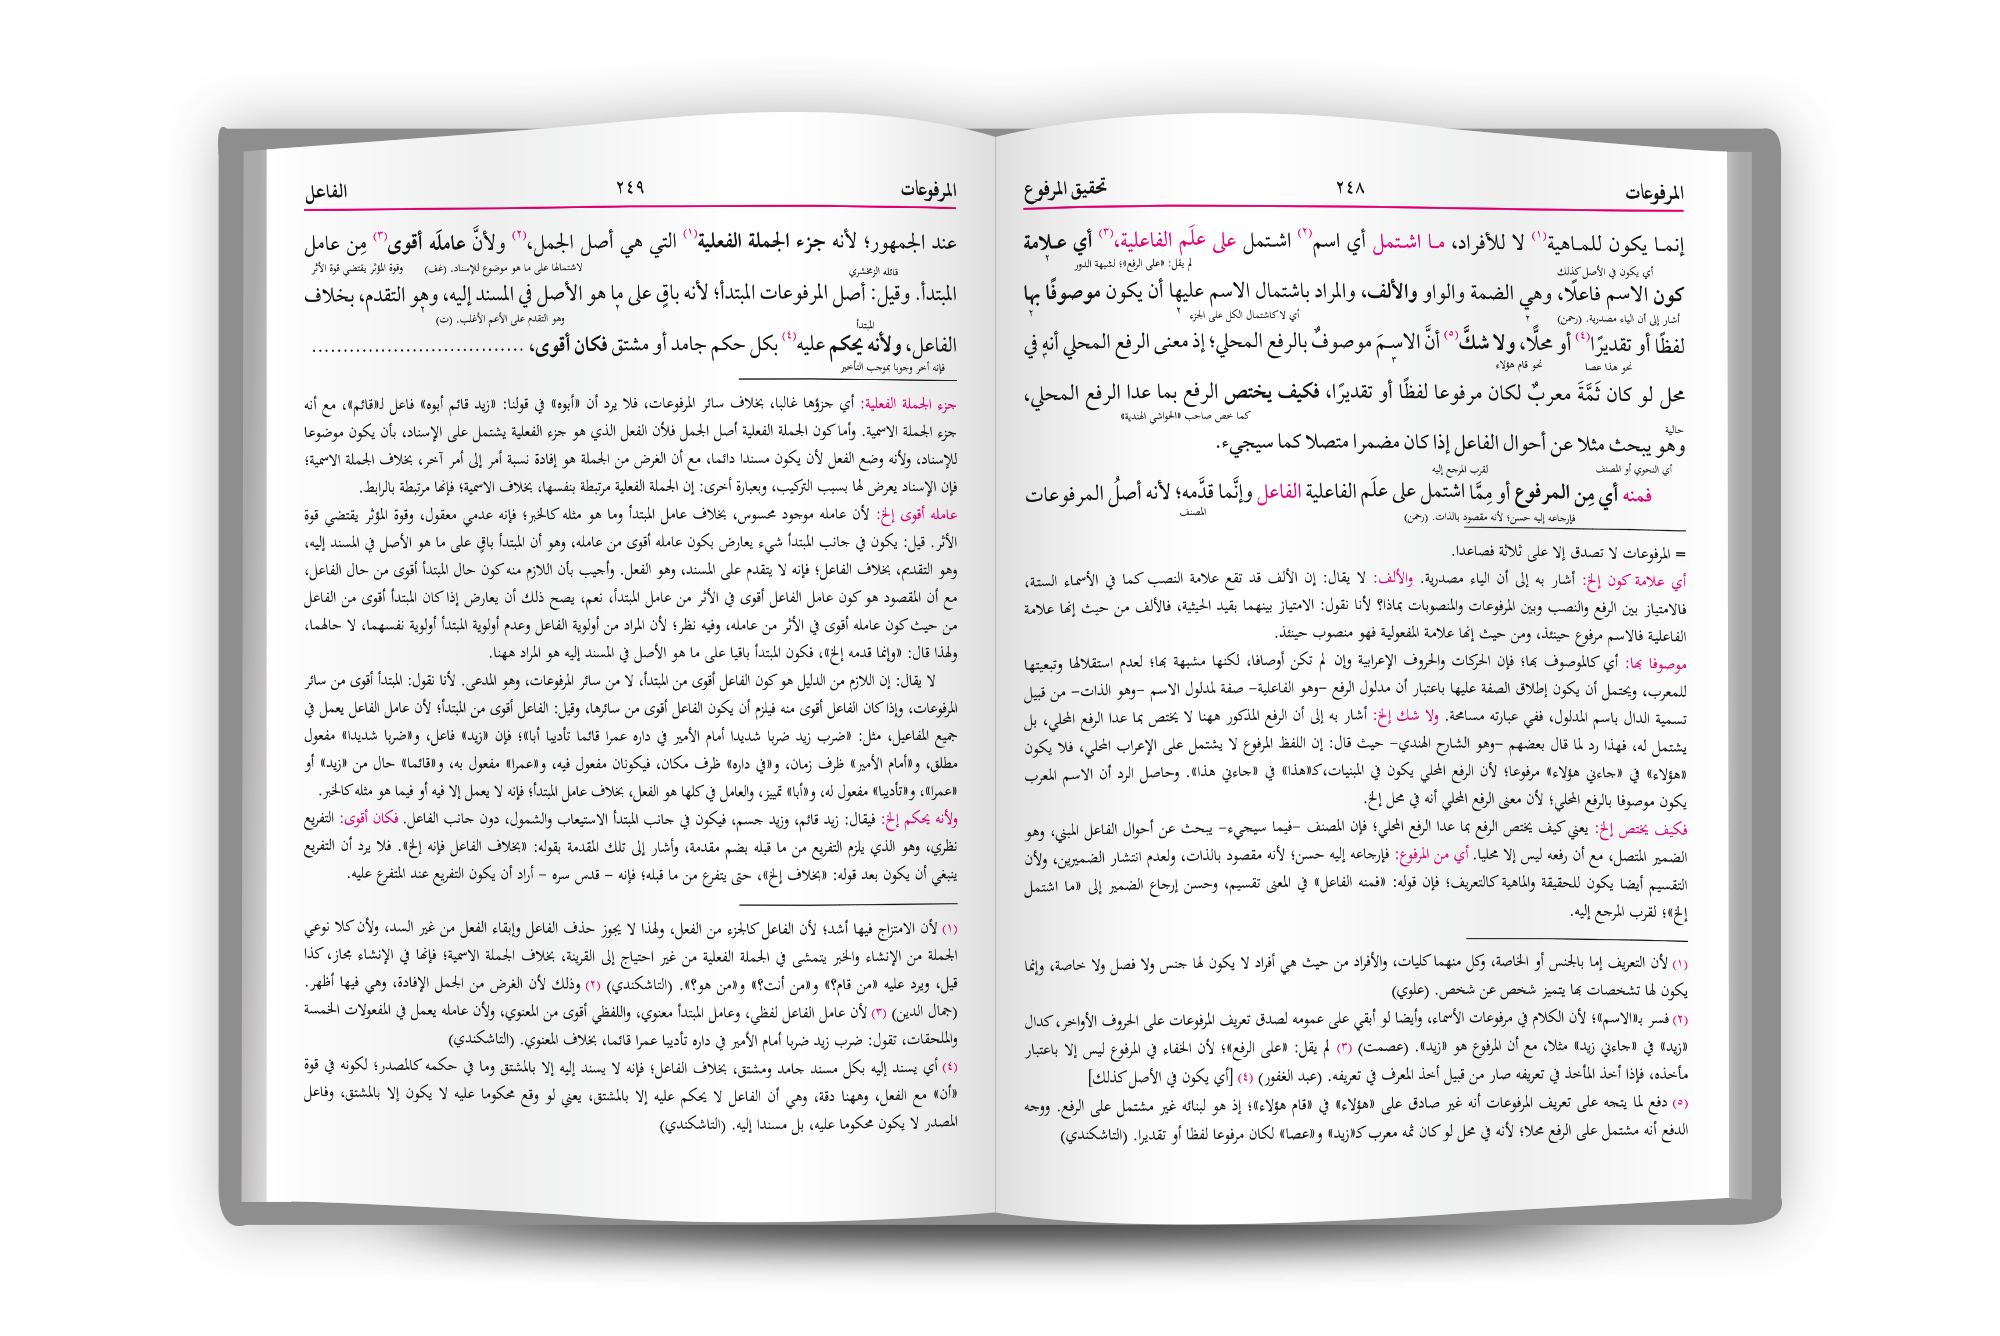 المرفوعات ٢٤٨ تحقيق المرفوع
إنمـا يكون للمـاهية(١) لا للأفراد، مـا اشـتمل أي اسم(٢) اشـتمل على علَم الفاعلية،(٣) أي عـلامة
أي يكون في الأصل كذلك لم يقل: «على الرفع»؛ لشبهة الدور ٢
كون الاسم فاعلًا، وهي الضمة والواو والألف، والمراد باشتمال الاسم عليها أن يكون موصوفًا بها
أشار إلى أن الياء مصدرية. (رحمن) ٢ أي لا كاشتمال الكل على الجزء ٢ ٢
لفظًا أو تقديرًا(٤) أو محلًّا، ولا شكَّ(٥) أنَّ الاسـمَ موصوفٌ بالرفع المحلي؛ إذ معنى الرفع المحلي أنه في
نحو هذا عصا نحو قام هؤلاء
محل لو كان ثَمَّةَ معربٌ لكان مرفوعا لفظًا أو تقديرًا، فكيف يختص الرفع بما عدا الرفع المحلي،
كما خص صاحب «الحواشي الهندية»
حالية
وهو يبحث مثلا عن أحوال الفاعل إذا كان مضمرا متصلا كما سيجيء.
أي النحوي أو المصنف لقرب المرجع إليه
فمنه أي مِن المرفوع أو مِمَّا اشتمل على علَم الفاعلية الفاعل وإنَّما قدَّمه؛ لأنه أصلُ المرفوعات
فإرجاعه إليه حسن؛ لأنه مقصود بالذات. (رحمن) المصنف
= المرفوعات لا تصدق إلا على ثلاثة فصاعدا.
أي علامة كون إلخ: أشار به إلى أن الياء مصدرية. والألف: لا يقال: إن الألف قد تقع علامة النصب كما في الأسماء الستة،
فالامتياز بين الرفع والنصب وبين المرفوعات والمنصوبات بماذا؟ لأنا نقول: الامتياز بينهما بقيد الحيثية، فالألف من حيث إنها علامة
الفاعلية فالاسم مرفوع حينئذ، ومن حيث إنها علامة المفعولية فهو منصوب حينئذ.
موصوفا بها: أي كالموصوف بها؛ فإن الحركات والحروف الإعرابية وإن لم تكن أوصافا، لكنها مشبهة بها؛ لعدم استقلالها وتبعيتها
للمعرب، ويحتمل أن يكون إطلاق الصفة عليها باعتبار أن مدلول الرفع –وهو الفاعلية– صفة لمدلول الاسم –وهو الذات– من قبيل
تسمية الدال باسم المدلول، ففي عبارته مسامحة. ولا شك إلخ: أشار به إلى أن الرفع المذكور ههنا لا يختص بما عدا الرفع المحلي، بل
يشتمل له، فهذا رد لما قال بعضهم –وهو الشارح الهندي– حيث قال: إن اللفظ المرفوع لا يشتمل على الإعراب المحلي، فلا يكون
«هؤلاء» في «جاءني هؤلاء» مرفوعا؛ لأن الرفع المحلي يكون في المبنيات،كـ«هذا» في «جاءني هذا». وحاصل الرد أن الاسم المعرب
يكون موصوفا بالرفع المحلي؛ لأن معنى الرفع المحلي أنه في محل إلخ.
فكيف يختص إلخ: يعني كيف يختص الرفع بما عدا الرفع المحلي؛ فإن المصنف –فيما سيجيء– يبحث عن أحوال الفاعل المبني، وهو
الضمير المتصل، مع أن رفعه ليس إلا محليا. أي من المرفوع: فإرجاعه إليه حسن؛ لأنه مقصود بالذات، ولعدم انتشار الضميرين، ولأن
التقسيم أيضا يكون للحقيقة والماهية كالتعريف؛ فإن قوله: «فمنه الفاعل» في المعنى تقسيم، وحسن إرجاع الضمير إلى «ما اشتمل
إلخ»؛ لقرب المرجع إليه.
(١) لأن التعريف إما بالجنس أو الخاصة، وكل منهما كليات، والأفراد من حيث هي أفراد لا يكون لها جنس ولا فصل ولا خاصة، وإنما
يكون لها تشخصات بها يتميز شخص عن شخص. (علوي)
(٢) فسر بـ«الاسم»؛ لأن الكلام في مرفوعات الأسماء، وأيضا لو أبقي على عمومه لصدق تعريف المرفوعات على الحروف الأواخر، كدال
«زيد» في «جاءني زيد» مثلا، مع أن المرفوع هو «زيد». (عصمت) (٣) لم يقل: «على الرفع»؛ لأن الخفاء في المرفوع ليس إلا باعتبار
مأخذه، فإذا أخذ المأخذ في تعريفه صار من قبيل أخذ المعرف في تعريفه. (عبد الغفور) (٤) [أي يكون في الأصل كذلك]
(٥) دفع لما يتجه على تعريف المرفوعات أنه غير صادق على «هؤلاء» في «قام هؤلاء»؛ إذ هو لبنائه غير مشتمل على الرفع. ووجه
الدفع أنه مشتمل على الرفع محلا؛ لأنه في محل لو كان ثمه معرب كـ«زيد» و«عصا» لكان مرفوعا لفظا أو تقديرا. (التاشكندي)
المرفوعات ٢٤٩ الفاعل
عند الجمهور؛ لأنه جزء الجملة الفعلية(١) التي هي أصل الجمل،(٢) ولأنَّ عاملَه أقوى(٣) مِن عامل
قائله الزمخشري لاشتمالها على ما هو موضوع للإسناد. (غف) وقوة المؤثر يقتضي قوة الأثر
المبتدأ. وقيل: أصل المرفوعات المبتدأ؛ لأنه باقٍ على ما هو الأصل في المسند إليه، وهو التقدم، بخلاف
المبتدأ ٢ وهو التقدم على الأعم الأغلب. (ت) ٢
الفاعل، ولأنه يحكم عليه(٤) بكل حكم جامد أو مشتق فكان أقوى، ..................................
فإنه أخر وجوبا بموجب التأخير
جزء الجملة الفعلية: أي جزؤها غالبا، بخلاف سائر المرفوعات، فلا يرد أن «أبوه» في قولنا: «زيد قائم أبوه» فاعل لـ«قائم»، مع أنه
جزء الجملة الاسمية. وأما كون الجملة الفعلية أصل الجمل فلأن الفعل الذي هو جزء الفعلية يشتمل على الإسناد، بأن يكون موضوعا
للإسناد، ولأنه وضع الفعل لأن يكون مسندا دائما، مع أن الغرض من الجملة هو إفادة نسبة أمر إلى أمر آخر، بخلاف الجملة الاسمية؛
فإن الإسناد يعرض لها بسبب التركيب، وبعبارة أخرى: إن الجملة الفعلية مرتبطة بنفسها، بخلاف الاسمية؛ فإنها مرتبطة بالرابط.
عامله أقوى إلخ: لأن عامله موجود محسوس، بخلاف عامل المبتدأ وما هو مثله كالخبر؛ فإنه عدمي معقول، وقوة المؤثر يقتضي قوة
الأثر. قيل: يكون في جانب المبتدأ شيء يعارض بكون عامله أقوى من عامله، وهو أن المبتدأ باقٍ على ما هو الأصل في المسند إليه،
وهو التقديم، بخلاف الفاعل؛ فإنه لا يتقدم على المسند، وهو الفعل. وأجيب بأن اللازم منه كون حال المبتدأ أقوى من حال الفاعل،
مع أن المقصود هو كون عامل الفاعل أقوى في الأثر من عامل المبتدأ، نعم، يصح ذلك أن يعارض إذا كان المبتدأ أقوى من الفاعل
من حيث كون عامله أقوى في الأثر من عامله، وفيه نظر؛ لأن المراد من أولوية الفاعل وعدم أولوية المبتدأ أولوية نفسهما، لا حالهما،
ولهذا قال: «وإنما قدمه إلخ»، فكون المبتدأ باقيا على ما هو الأصل في المسند إليه هو المراد ههنا.
لا يقال: إن اللازم من الدليل هو كون الفاعل أقوى من المبتدأ، لا من سائر المرفوعات، وهو المدعى. لأنا نقول: المبتدأ أقوى من سائر
المرفوعات، وإذا كان الفاعل أقوى منه فيلزم أن يكون الفاعل أقوى من سائرها، وقيل: الفاعل أقوى من المبتدأ؛ لأن عامل الفاعل يعمل في
جميع المفاعيل، مثل: «ضرب زيد ضربا شديدا أمام الأمير في داره عمرا قائما تأديبا أبا»؛ فإن «زيد» فاعل، و«ضربا شديدا» مفعول
مطلق، و«أمام الأمير» ظرف زمان، و«في داره» ظرف مكان، فيكونان مفعول فيه، و«عمرا» مفعول به، و«قائما» حال من «زيد» أو
«عمرا»، و«تأديبا» مفعول له، و«أبا» تمييز، والعامل في كلها هو الفعل، بخلاف عامل المبتدأ؛ فإنه لا يعمل إلا فيه أو فيما هو مثله كالخبر.
ولأنه يحكم إلخ: فيقال: زيد قائم، وزيد جسم، فيكون في جانب المبتدأ الاستيعاب والشمول، دون جانب الفاعل. فكان أقوى: التفريع
نظري، وهو الذي يلزم التفريع من ما قبله بضم مقدمة، وأشار إلى تلك المقدمة بقوله: «بخلاف الفاعل فإنه إلخ». فلا يرد أن التفريع
ينبغي أن يكون بعد قوله: «بخلاف إلخ»، حتى يتفرع من ما قبله؛ فإنه – قدس سره – أراد أن يكون التفريع عند المتفرع عليه.
(١) لأن الامتزاج فيها أشد؛ لأن الفاعل كالجزء من الفعل، ولهذا لا يجوز حذف الفاعل وإبقاء الفعل من غير السد، ولأن كلا نوعي
الجملة من الإنشاء والخبر يتمشى في الجملة الفعلية من غير احتياج إلى القرينة، بخلاف الجملة الاسمية؛ فإنها في الإنشاء مجاز، كذا
قيل، ويرد عليه «من قام؟» و«من أنت؟» و«من هو؟». (التاشكندي) (٢) وذلك لأن الغرض من الجمل الإفادة، وهي فيها أظهر.
(جمال الدين) (٣) لأن عامل الفاعل لفظي، وعامل المبتدأ معنوي، واللفظي أقوى من المعنوي، ولأن عامله يعمل في المفعولات الخمسة
والملحقات، تقول: ضرب زيد ضربا أمام الأمير في داره تأديبا عمرا قائما، بخلاف المعنوي. (التاشكندي)
(٤) أي يسند إليه بكل مسند جامد ومشتق، بخلاف الفاعل؛ فإنه لا يسند إليه إلا بالمشتق وما في حكمه كالمصدر؛ لكونه في قوة
«أن» مع الفعل، وههنا دقة، وهي أن الفاعل لا يحكم عليه إلا بالمشتق، يعني لو وقع محكوما عليه لا يكون إلا بالمشتق، وفاعل
المصدر لا يكون محكوما عليه، بل مسندا إليه. (التاشكندي)